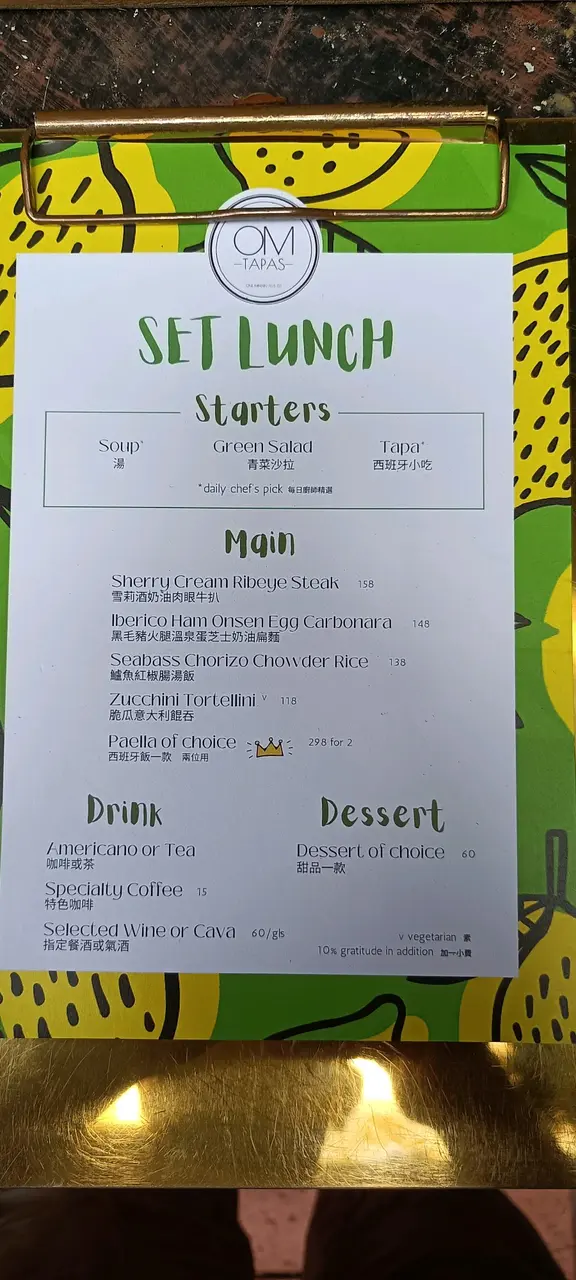 OM
-TAPAS-
SET LUNCH
Starters
Soup* Green Salad Tapa*
湯 青菜沙拉 西班牙小吃
*daily chef's pick 每日廚師精選
Main
Sherry Cream Ribeye Steak 158
雪莉酒奶油肉眼牛扒
Iberico Ham Onsen Egg Carbonara 148
黑毛豬火腿溫泉蛋芝士奶油扁麵
Seabass Chorizo Chowder Rice 138
鱸魚紅椒腸湯飯
Zucchini Tortellini v 118
脆瓜意大利餛吞
Paella of choice 298 for 2
西班牙飯一款 兩位用
Drink
Americano or Tea
咖啡或茶
Specialty Coffee 15
特色咖啡
Selected Wine or Cava 60/gls
指定餐酒或氣酒
Dessert
Dessert of choice 60
甜品一款
v vegetarian 素
10% gratitude in addition 加一小費